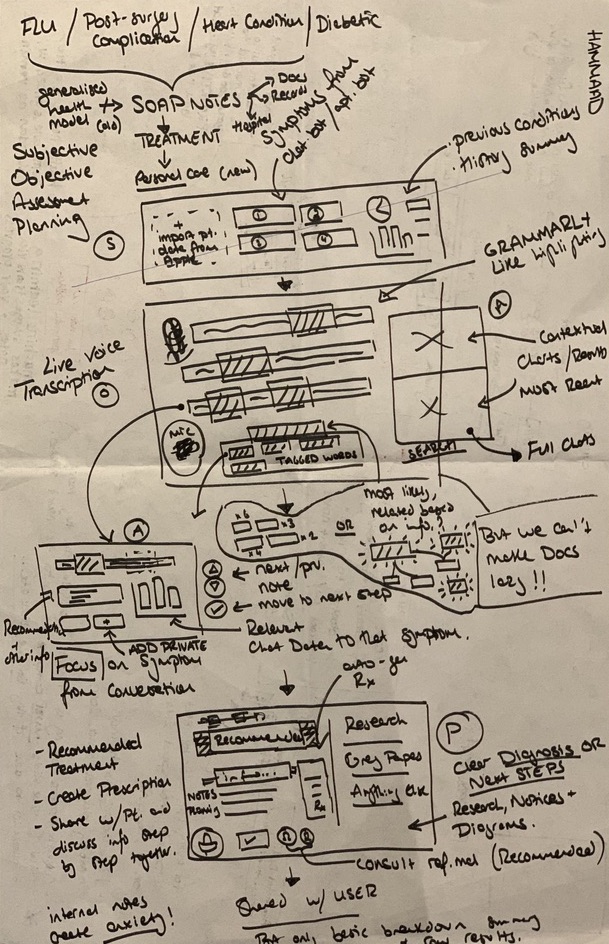 FLU / Post-surgery Complication / Heart Condition / Diabetic
HAMMAAD
generalised
health
model (old)
SOAP NOTES
Docs
Records
Hospital
Symptoms from
Chat bot / api. bot
TREATMENT
Personal care (new)
Subjective
Objective
Assessment
Planning
S
previous conditions
History summary
+
import pt.
data from
Apple
1
2
3
4
GRAMMARLY
like highlighting
A
Live Voice
Transcription
O
Contextual
Charts /
Most Recent
Full Charts
SEARCH
MIC
TAGGED WORDS
x6
x3
x4
x2
OR
most likely,
related based
on info.?
But we can't
make Docs
lazy !!
A
next / prv.
note
move to next step
Recommend
other info
ADD PRIVATE
Relevant
Chat Data to that symptom.
Focus on Symptom
from Conversation
auto-gen
Rx
Recommended
info...
NOTES
Rx
Research
Grey Papes
Anything Else
P
Clear Diagnosis OR
Next STEPS
Research, Notices +
Diagrams.
- Recommended
Treatment
- Create Prescription
- Share w/ Pt. and
discuss info step
by step together.
Consult ref. (Recommended)
internal notes
create anxiety!
Shared w/ USER
But only basic breakdown, summary
results.